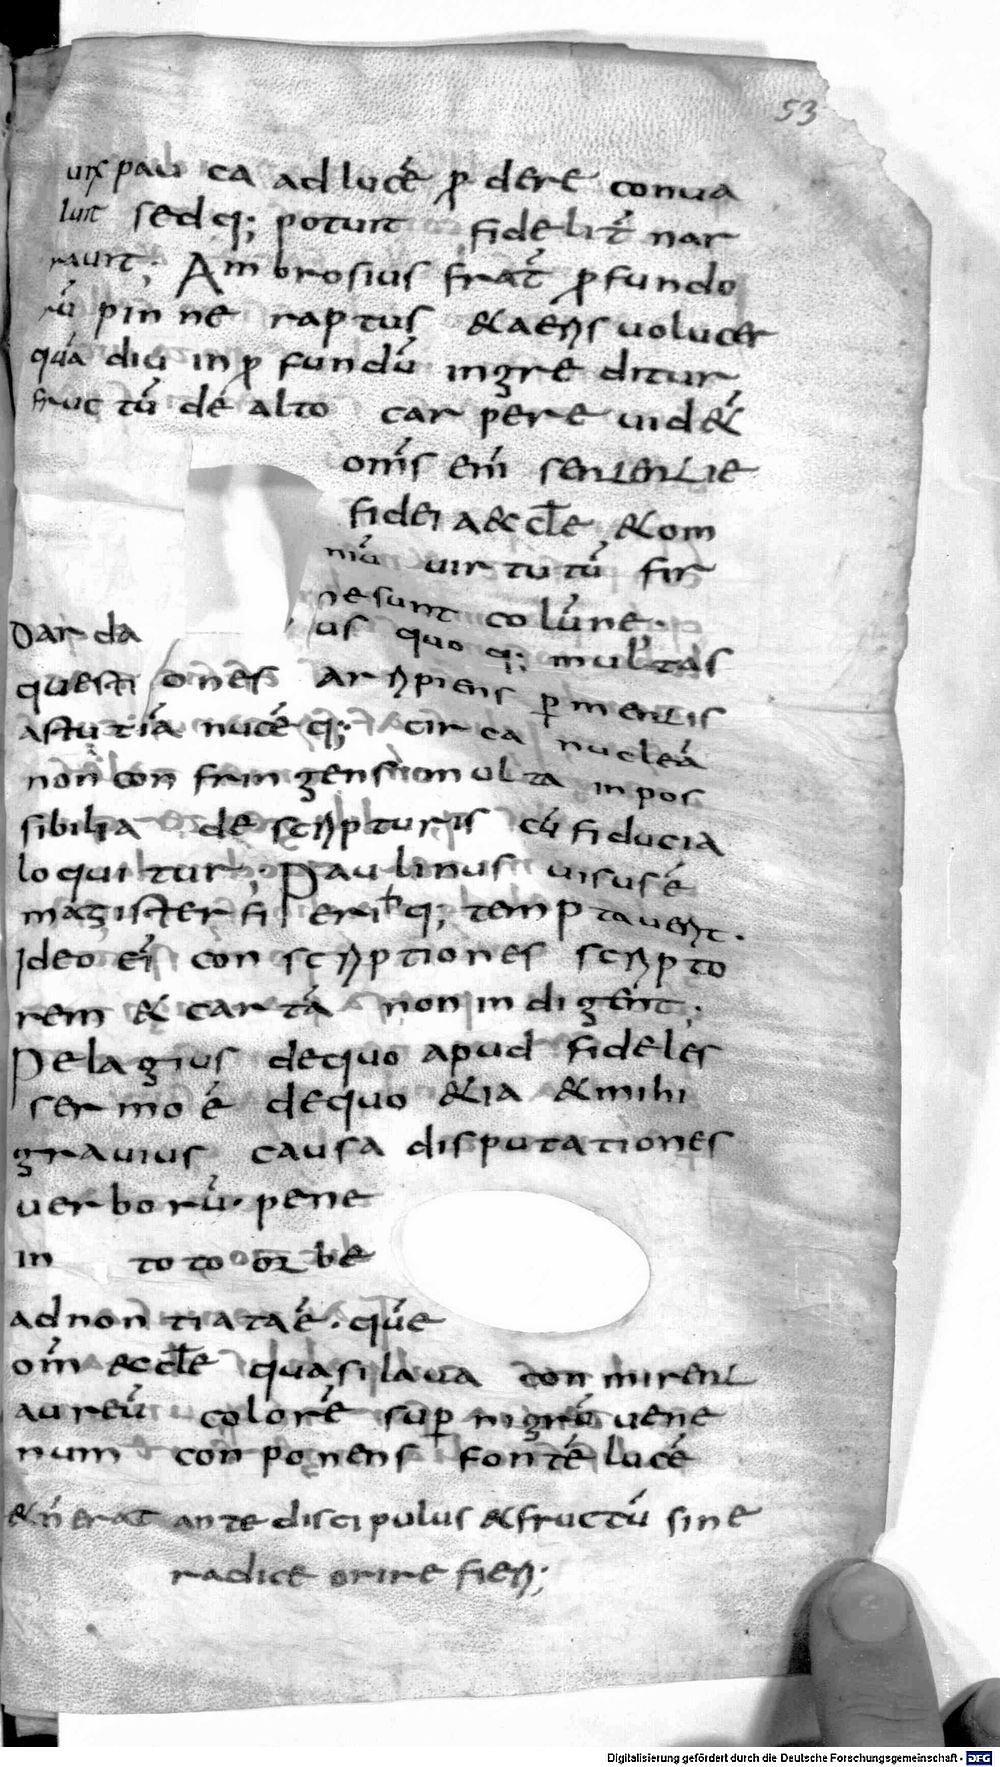 53
uix pauca ad lucē ꝓdere conua
luit sed q; potuit fidelit̄ nar
rauit; Ambrosius frat̄ ꝓfundo
rū pinne raptus & aeris uolucer
quā diu in ꝓfundū ingreditur
fructū de alto carpere uid&
om̄s em̄ sententie
fidei aeccl̄e & om
niū uirtutū fir
ne sunt colūne.
Darda us quoq; multas
questiones aripiens ꝑ mentis
astutiā nucēq; circa nucleā
non confringens multa inpos
sibilia de scripturis cū fiducia
loquitur; Paulinus uisus ē
magister si erib; q; temptauerit.
Ideo ei conscriptiones scripto
rem & cartā non indigent;
Pelagius de quo apud fideles
sermo ē de quo &ia & mihi
grauius causa disputationes
uerborū. pene
in toto orbe
adnontiata ē. quē
om̄ aeccl̄e quasi laua conmirent
aureū colorē suꝑ nigrū uene
num conponens fontē lucē
& n̄ erat ante discipulus & fructū sine
radice orire fieri;
Digitalisierung gefördert durch die Deutsche Forschungsgemeinschaft - DFG